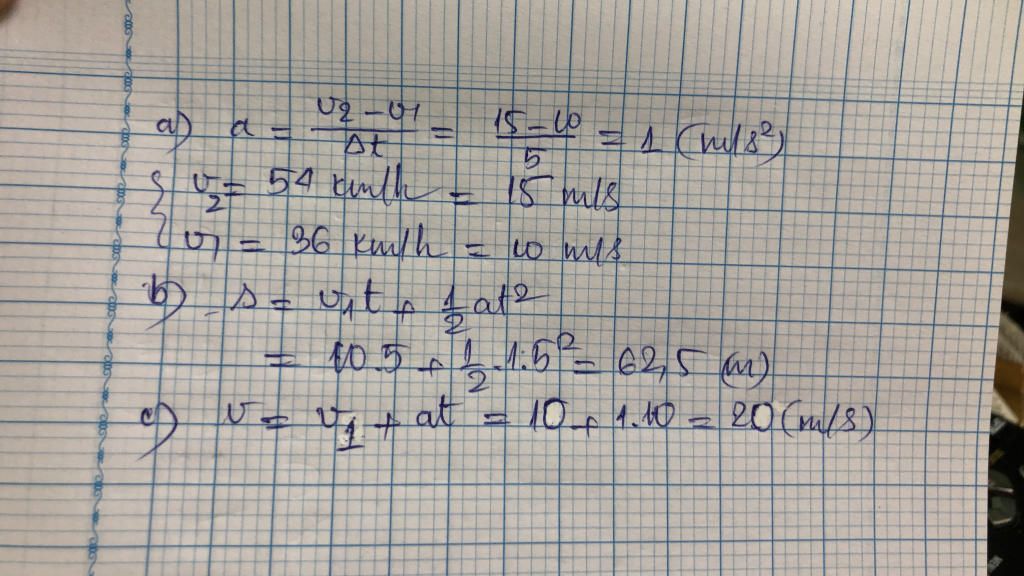 a) a = (v2 – v1)/Δt = (15 – 10)/5 = 1 (m/s²)
{ v₂ = 54 km/h = 15 m/s
v1 = 36 km/h = 10 m/s
b) s = v₁t + 1/2 at²
= 10.5 + 1/2 .1.5² = 62,5 (m)
c) v = v₁ + at = 10 + 1.10 = 20 (m/s)